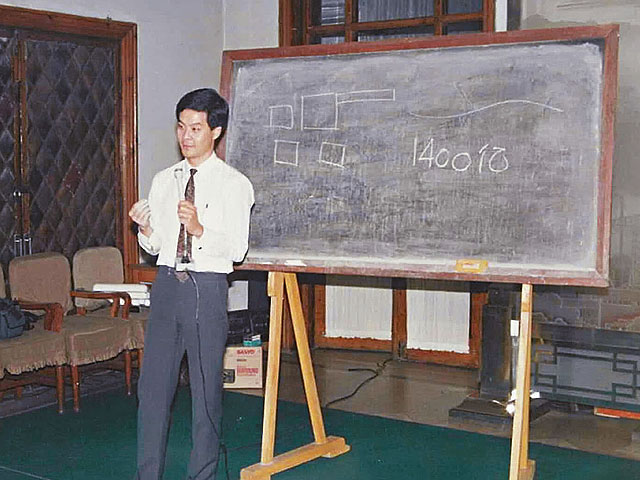 1400亿
SANYO